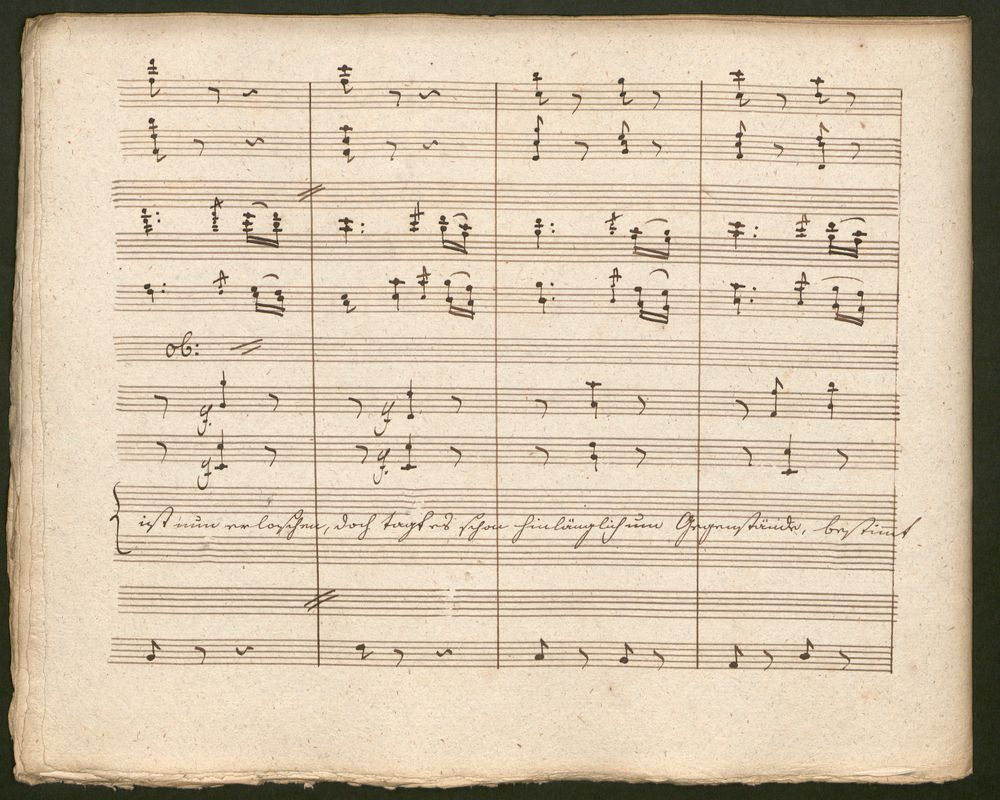 ob:
f.
f
f.
f.
ist nun erloschen, doch tagt es schon hinlänglich um Gegenstände, bestimmt